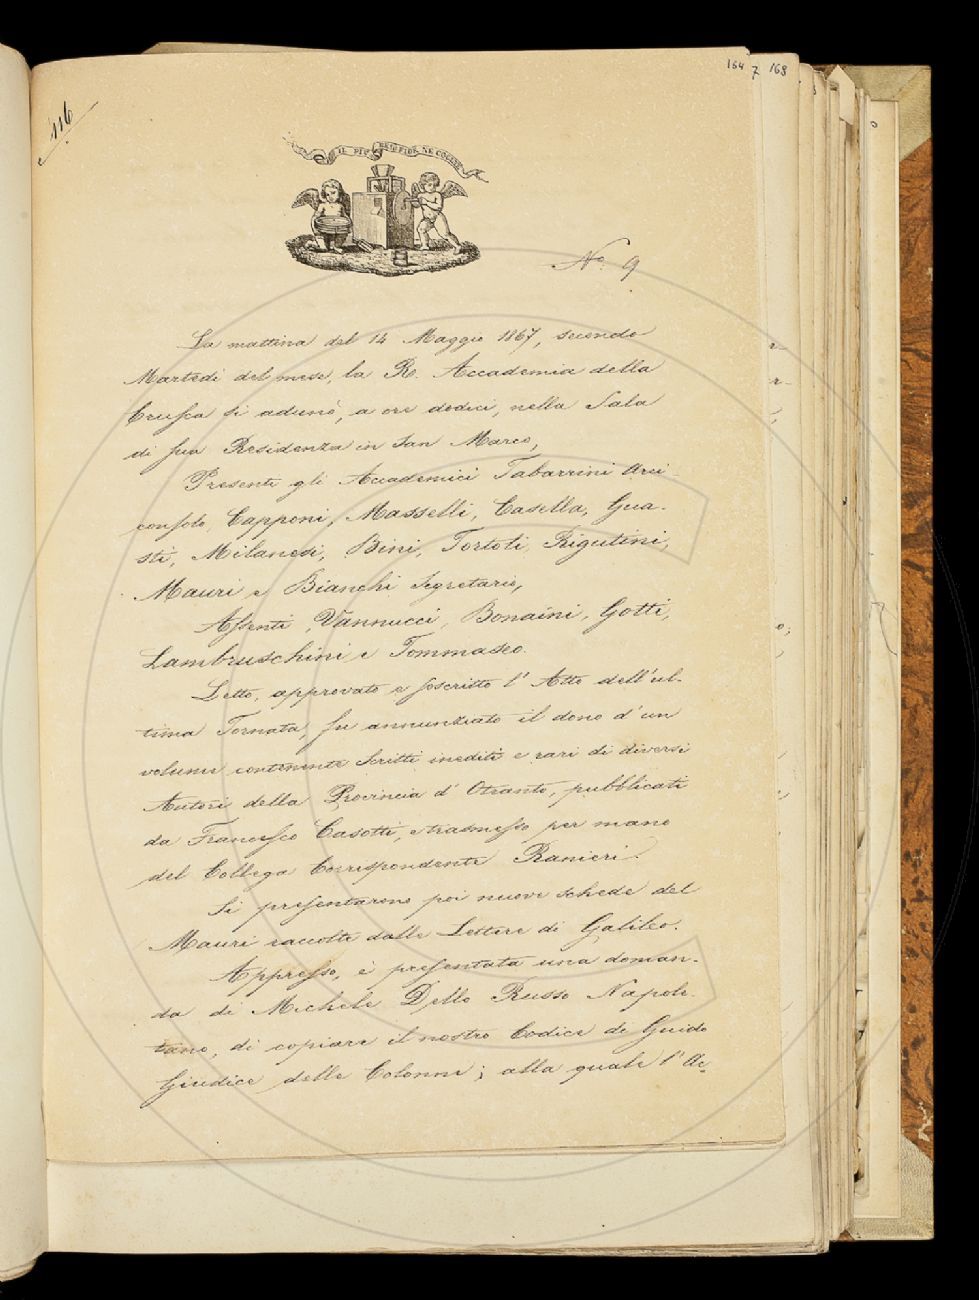 164 7 168
116
IL PIÙ BEL FIOR NE COGLIE
N.º 9
La mattina del 14 Maggio 1867, secondo
Martedì del mese, la R. Accademia della
Crusca si adunò, a ore dodici, nella Sala
di sua Residenza in San Marco,
Presenti gli Accademici Tabarrini Arci-
consolo, Capponi, Masselli, Casella, Gua-
sti, Milanesi, Bini, Tortoli, Rigutini,
Mauri e Bianchi Segretario,
Assenti, Vannucci, Bonaini, Gotti,
Lambruschini e Tommaseo.
Letto, approvato e soscritto l'Atto dell'ul-
tima Tornata, fu annunziato il dono d'un
volume contenente Scritti inediti e rari di diversi
Autori della Provincia d'Otranto, pubblicati
da Francesco Casotti, e trasmesso per mano
del Collega Corrispondente Ranieri.
Si presentarono poi nuove schede del
Mauri raccolte dalle Lettere di Galileo.
Appresso, è presentata una doman-
da di Michele Dello Russo Napole-
tano, di copiare il nostro Codice de Guido
Giudice delle Colonne; alla quale l'Ac-